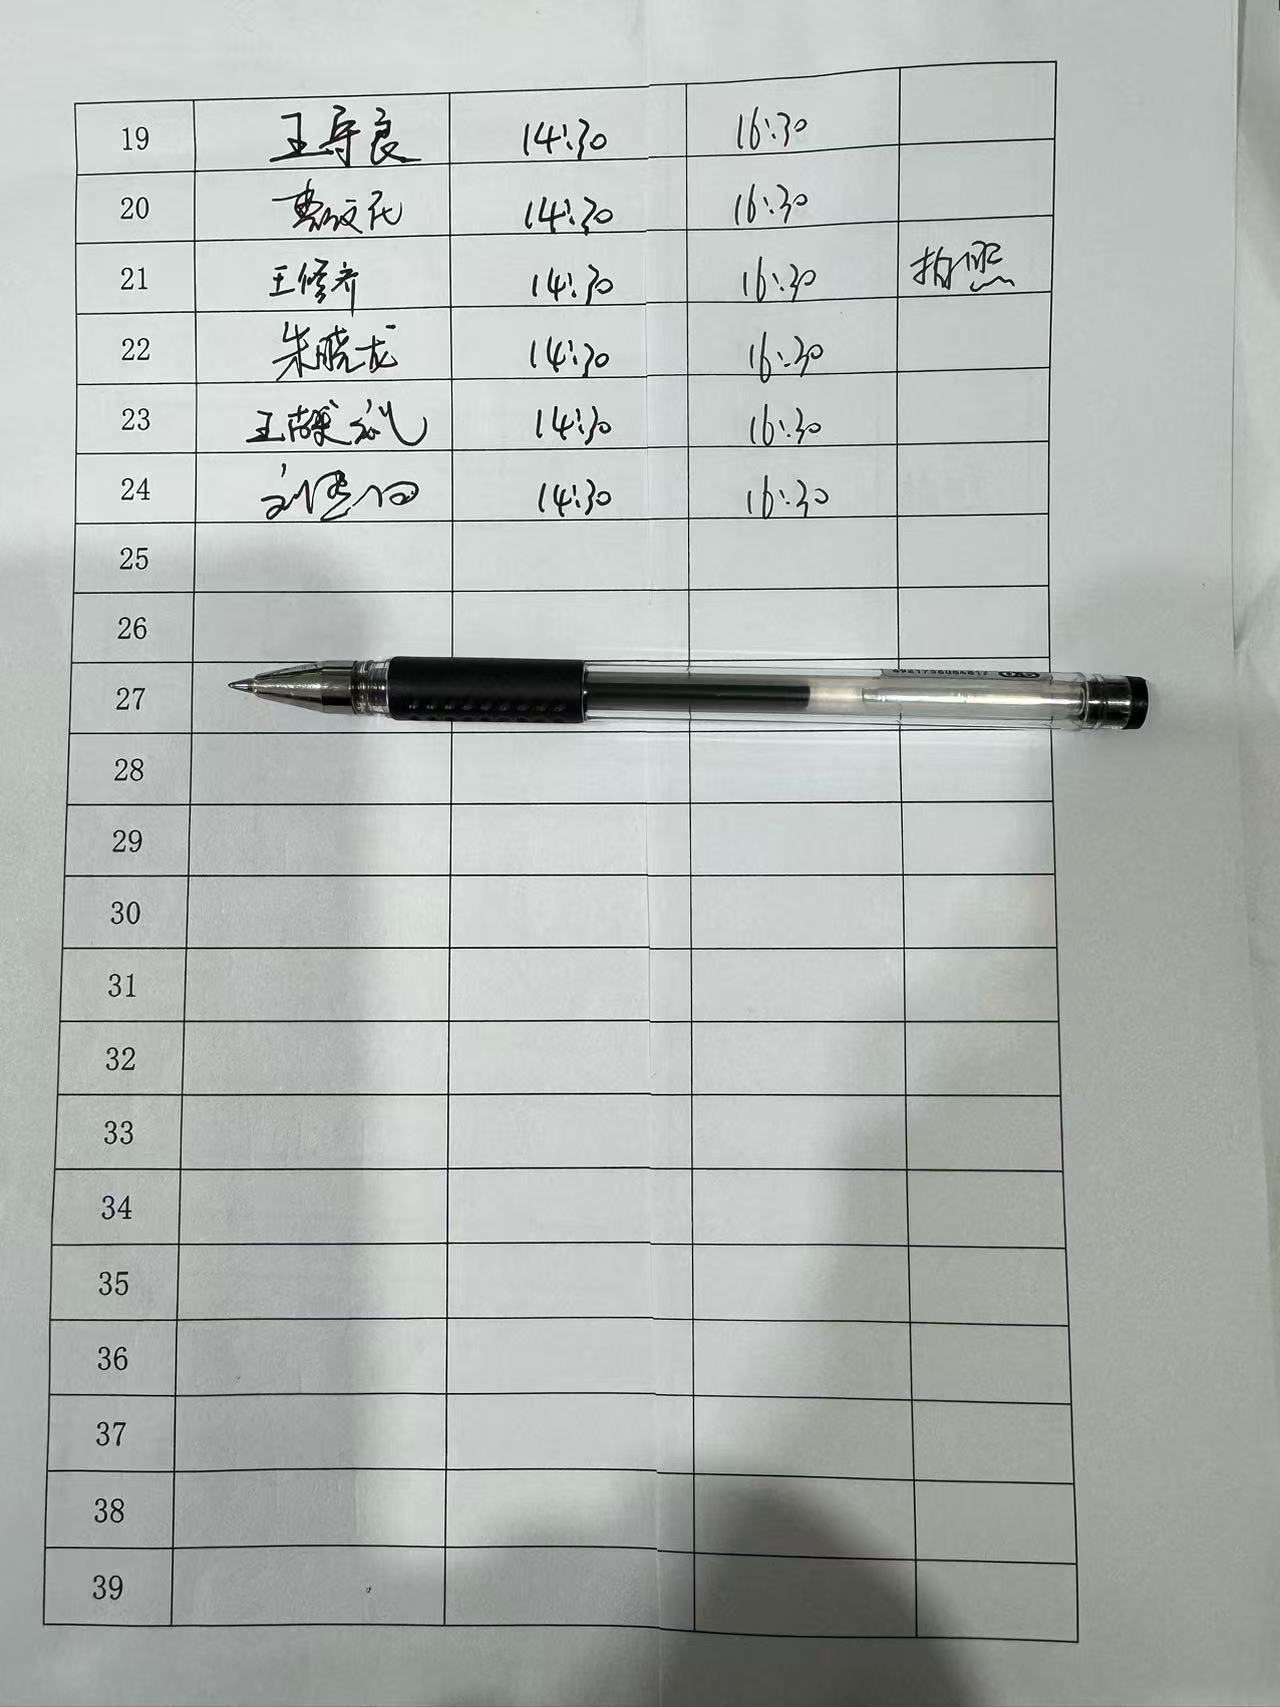 19 王守良 14:30 16:30
20 14:30 16:30
21 王修齐 14:30 16:30 拍照
22 朱晓龙 14:30 16:30
23 王 14:30 16:30
24 刘 14:30 16:30
25
26
27
6921738084817
28
29
30
31
32
33
34
35
36
37
38
39